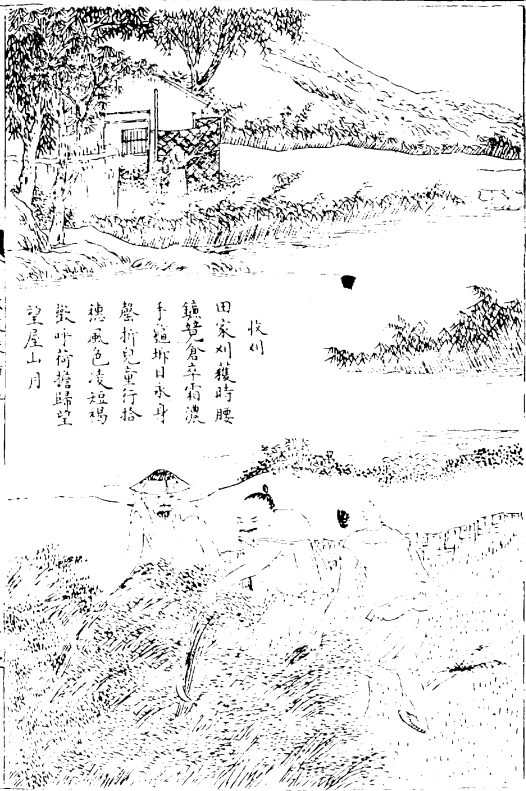 收刈
田家刈穫時腰
鎌競倉卒霜濃
手龜坼日永身
罄折兒童行拾
穗風色凌短褐
歡呼荷擔歸望
望屋山月